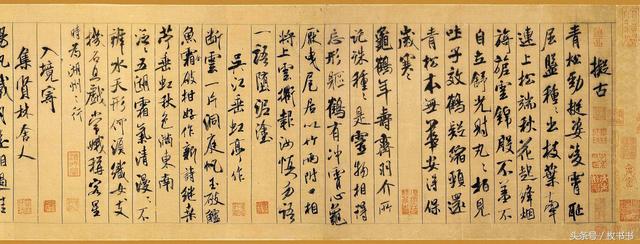 擬古
青松勁挺姿凌霄恥
屈盤種種出枝葉牽
連上松端秋花起絳煙
旖旎雲錦殷不羞不
自立舒光射丸丸柏見
吐子效鶴疑縮頸還
青松本無華安得保
歲寒
龜鶴年壽齊羽介所
託殊種種是靈物相得
忘形軀鶴有沖霄心龜
厭曳尾居以竹兩附口相
將上雲衢報汝慎勿語
一語墮泥塗
吳江垂虹亭作
斷雲一片洞庭帆玉破鱸
魚霜破柑好作新詩繼桑
苧垂虹秋色滿東南
泛泛五湖霜氣清漫漫不
辨水天形何須織女支
機石且戲嫦娥稱客星
時為湖州之行
入境寄
集賢林舍人
揚帆載月遠相過佳
头条号 / 枚书书